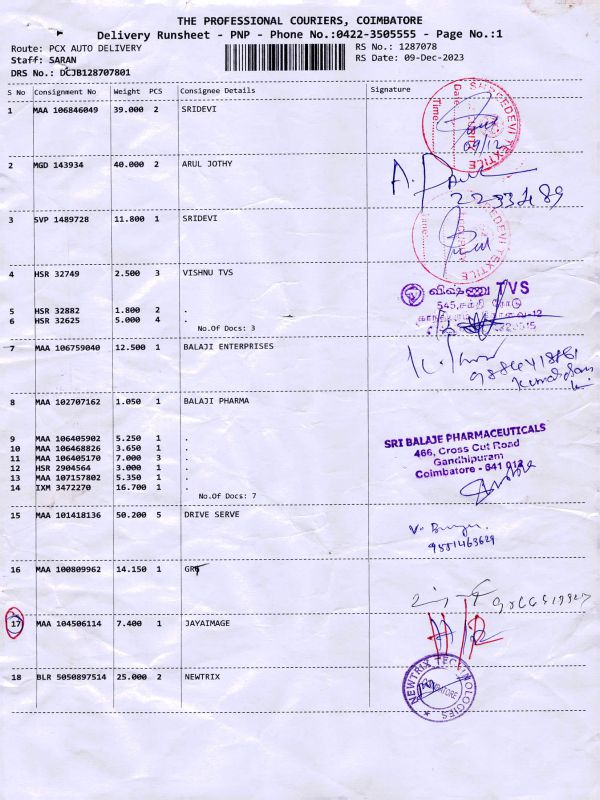 THE PROFESSIONAL COURIERS, COIMBATORE
Delivery Runsheet - PNP - Phone No.:0422-3505555 - Page No.:1
Route: PCX AUTO DELIVERY
RS No.: 1287078
Staff: SARAN
RS Date: 09-Dec-2023
DRS No.: DCJB128707801
S No Consignment No Weight PCS Consignee Details Signature
1 MAA 106846049 39.000 2 SRIDEVI
SHREEDEVI TEXTILE
Date
Time:
09/12
2 MGD 143934 40.000 2 ARUL JOTHY
3 SVP 1489728 11.800 1 SRIDEVI
4 HSR 32749 2.500 3 VISHNU TVS
விஷ்ணு TVS
5 HSR 32882 1.800 2 .
6 HSR 32625 5.000 4 .
No.Of Docs: 3
7 MAA 106759040 12.500 1 BALAJI ENTERPRISES
8 MAA 102707162 1.050 1 BALAJI PHARMA
9 MAA 106405902 5.250 1 .
10 MAA 106468826 3.650 1 .
11 MAA 106405170 7.000 3 .
12 HSR 2904564 3.000 1 .
13 MAA 107157802 5.350 1 .
14 IXM 3472270 16.700 1 .
No.Of Docs: 7
SRI BALAJE PHARMACEUTICALS
466, Cross Cut Road
Gandhipuram
Coimbatore - 641 012
15 MAA 101418136 50.200 5 DRIVE SERVE
9551463629
16 MAA 100809962 14.150 1
17 MAA 104506114 7.400 1 JAYAIMAGE
18 BLR 5050897514 25.000 2 NEWTRIX
NEWTRIX TECHNOLOGIES